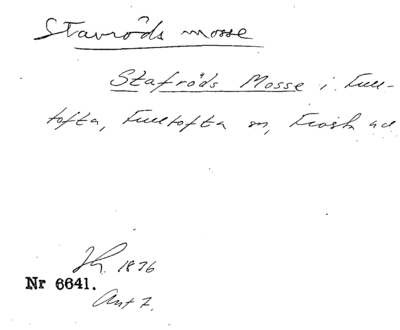 Stavröds mosse
Stafröds Mosse i Full-
tofta, Fulltofta sn, Frosta hd
Jh. 1876
Nr 6641.
Ant 7.